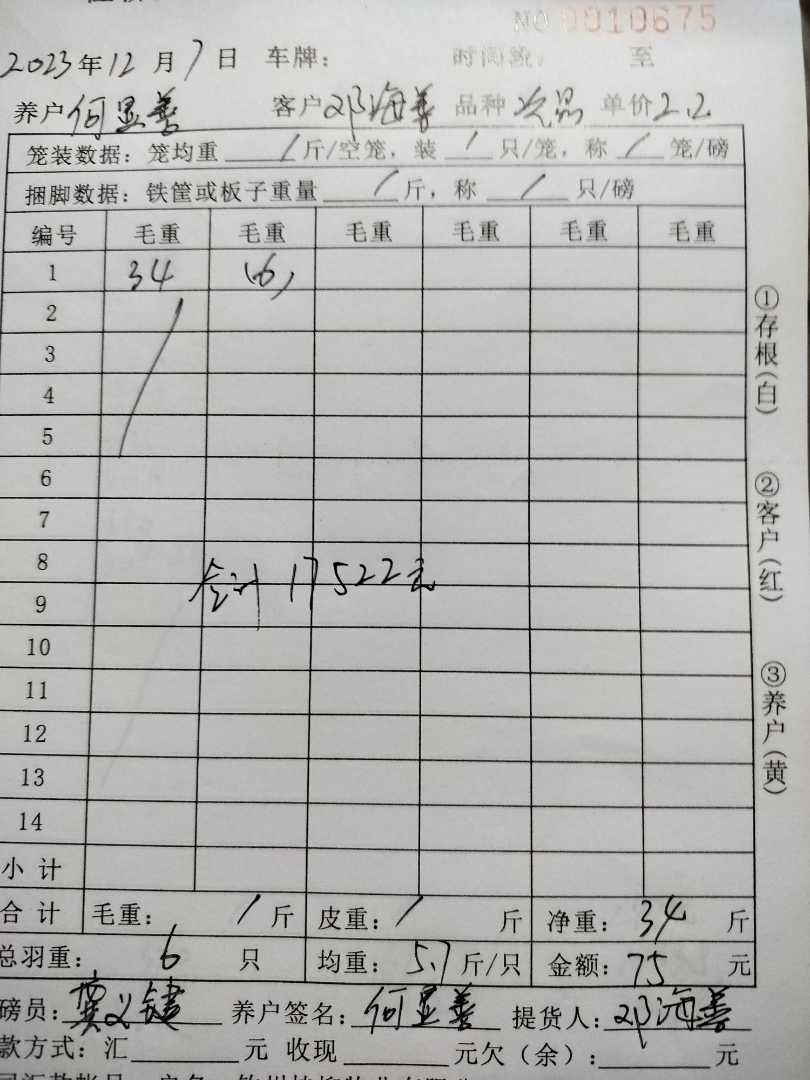 NO 0010675
2023年12月7日 车牌： 时间 至
养户 何显善 客户 邓海善 品种 次品 单价 2.2
笼装数据：笼均重 / 斤/空笼，装 / 只/笼，称 / 笼/磅
捆脚数据：铁筐或板子重量 / 斤，称 / 只/磅
编号 毛重 毛重 毛重 毛重 毛重 毛重
1 34 (6)
2
3
4
5
6
7
8
合计 17522元
9
10
11
12
13
14
小计
合计 毛重： / 斤 皮重： / 斤 净重： 34 斤
总羽重： 6 只 均重： 5.7 斤/只 金额： 75 元
磅员： 养户签名： 何显善 提货人： 邓海善
款方式：汇 元 收现 元欠（余）： 元
①存根(白)
②客户(红)
③养户(黄)